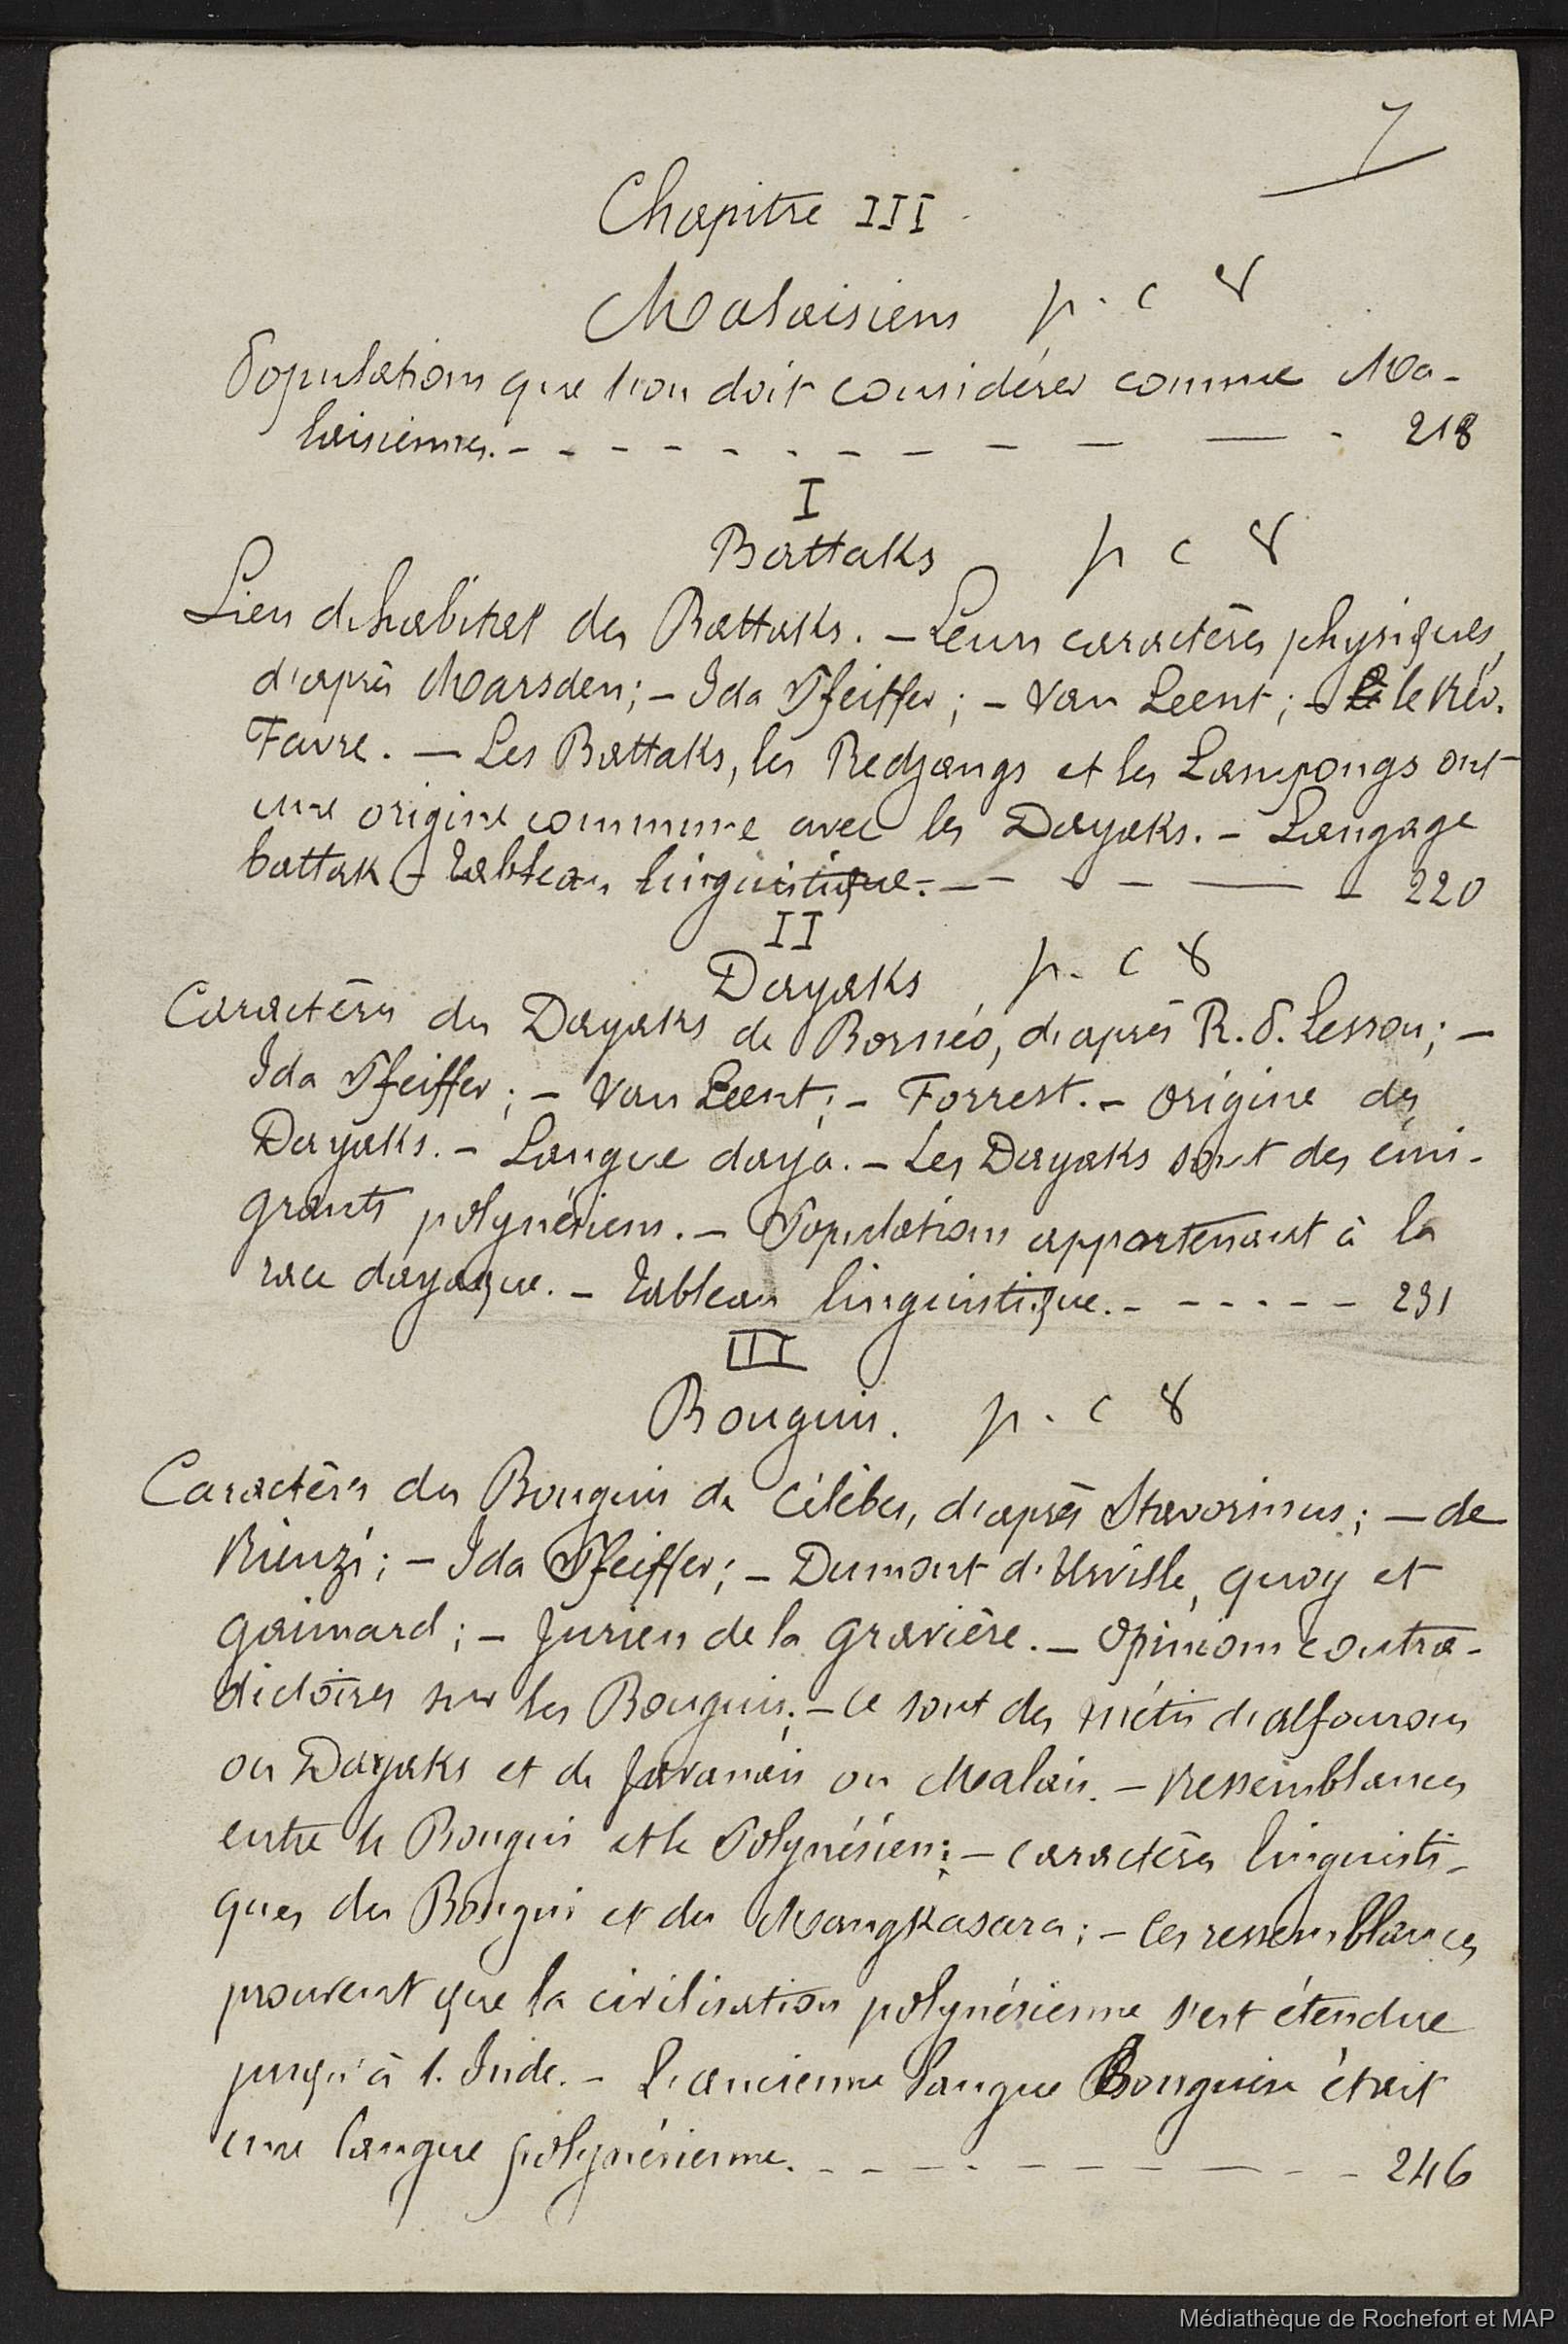 7
Chapitre III
Malaisiens p. c 8
Populations que l'on doit considérer comme Ma-
laisiennes. - - - - - - - - - - - - 218
I
Battaks p c 8
Lieu d'habitat des Battaks. — Leurs caractères physiques,
d'après Marsden; — Ida Pfeiffer; — Van Leent; — le Rév.
Favre. — Les Battaks, les Redjangs et les Lampongs ont
une origine commune avec les Dayaks. — Langage
battak — Tableau linguistique. - - - - - - 220
II
Dayaks p. c 8
Caractères des Dayaks de Bornéo, d'après R. P. Lesson; —
Ida Pfeiffer; — Van Leent; — Forrest. — origine des
Dayaks. — Langue daya. — Les Dayaks sont des émi-
grants polynésiens. — Populations appartenant à la
race dayaque. — Tableau linguistique. - - - - - - 231
III
Bouguis. p. c 8
Caractères des Bouguis de Célèbes, d'après Stavorinus; — de
Rienzi; — Ida Pfeiffer; — Dumont d'Urville, quoy et
gaimard; — Jurien de la gravière. — Opinions contra-
dictoires sur les Bouguis; — Ce sont des métis d'alfourous
ou Dayaks et de Javanais ou Malais. — Ressemblances
entre le Bougui et le Polynésien; — caractères linguisti-
ques du Bougui et du Mangkasara; — Ces ressemblances
prouvent que la civilisation polynésienne s'est étendue
jusqu'à l'Inde. — L'ancienne langue Bouguise était
une langue polynésienne. - - - - - - - - - - 246
Médiathèque de Rochefort et MAP